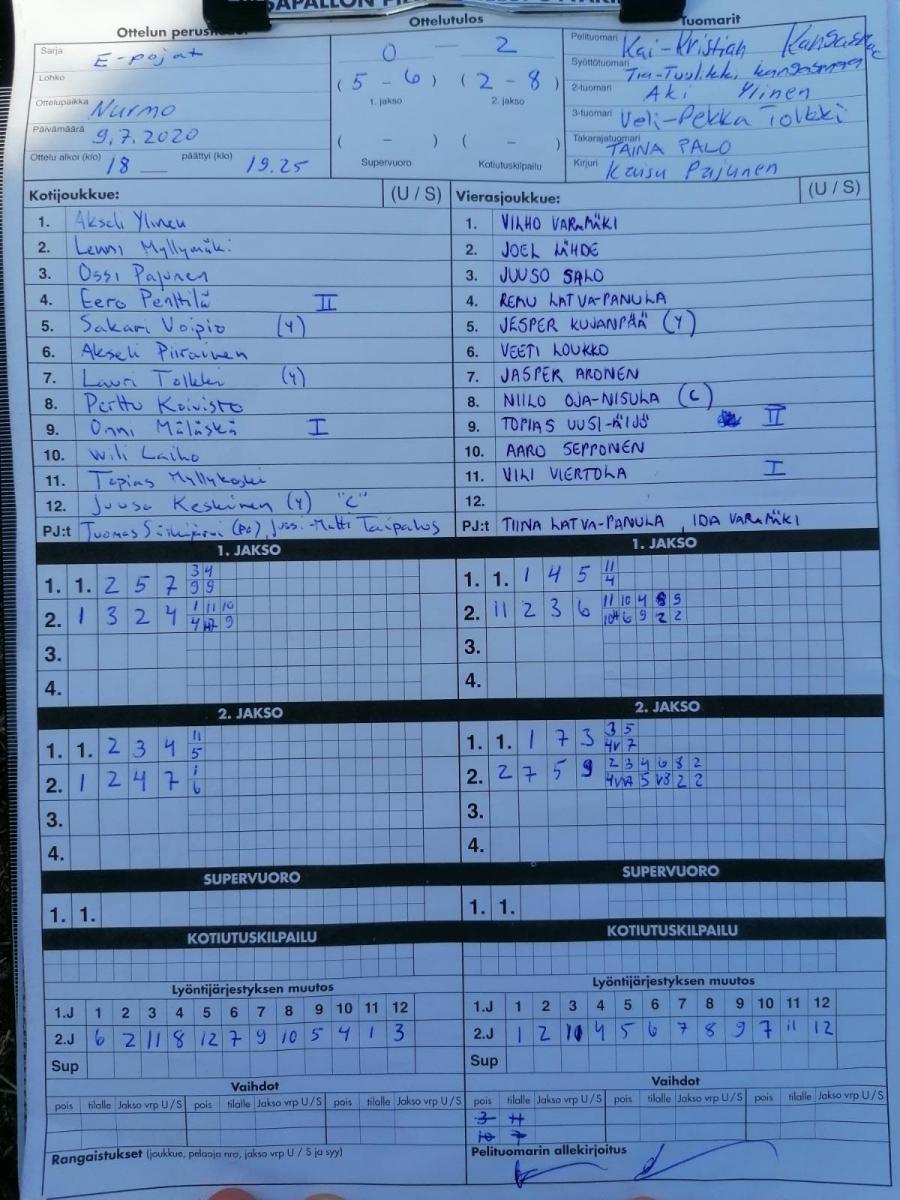 Ottelutulos
Tuomarit
Ottelun
Sarja E-pojat
Lohko
Ottelupaikka Nurmo
Päivämäärä 9.7.2020
Ottelu alkoi (klo) 18 päättyi (klo) 19.25
0 — 2
(5 - 6) (2 - 8)
1. jakso 2. jakso
( - ) ( - )
Supervuoro Kotiutuskilpailu
Pelituomari Kai-Kristian
Syöttötuomari
2-tuomari Aki Ylinen
3-tuomari Veli-Pekka Tolkki
Takarajatuomari TAINA PALO
Kirjuri Kaisu Pajunen
Kotijoukkue: (U / S)
1. Akseli Ylinen
2. Lenni Myllymäki
3. Ossi Pajunen
4. Eero Penttilä II
5. Sakari Voipio (Y)
6. Akseli Piirainen
7. Lauri Tolkki (Y)
8. Perttu Koivisto
9. Onni Mäläskä I
10. Wili Laiho
11. Topias Myllykoski
12. Juuso Keskinen (Y) "C"
PJ:t Tuomas (PJ), Jussi-Matti Taipalus
Vierasjoukkue: (U / S)
1. VILHO VARAMÄKI
2. JOEL LÄHDE
3. JUUSO SALO
4. REMU LATVA-PANULA
5. JESPER KUJANPÄÄ (Y)
6. VEETI LOUKKO
7. JASPER ARONEN
8. NIILO OJA-NISULA (C)
9. TOPIAS UUSI-ÄIJÖ II
10. AARO SEPPONEN
11. VILI VIERTOLA I
12.
PJ:t TIINA LATVA-PANULA, IDA VARAMÄKI
1. JAKSO
1. 1. 2 5 7 3 4
9 9
2. 1 3 2 4 1 11 10
4 9
3.
4.
1. JAKSO
1. 1. 1 4 5 11
4
2. 11 2 3 6 11 10 4 8 9
6 9 2 2
3.
4.
2. JAKSO
1. 1. 2 3 4 11
5
2. 1 2 4 7 1
6
3.
4.
2. JAKSO
1. 1. 1 7 3 3 5
4V 7
2. 2 7 5 9 2 3 4 6 8 2
5 V8 2 2
3.
4.
SUPERVUORO
1. 1.
SUPERVUORO
1. 1.
KOTIUTUSKILPAILU
KOTIUTUSKILPAILU
Lyöntijärjestyksen muutos
1.J 1 2 3 4 5 6 7 8 9 10 11 12
2.J 6 2 11 8 12 7 9 10 5 4 1 3
Sup
Lyöntijärjestyksen muutos
1.J 1 2 3 4 5 6 7 8 9 10 11 12
2.J 1 2 10 4 5 6 7 8 9 7 11 12
Sup
Vaihdot
pois tilalle Jakso vrp U / S pois tilalle Jakso vrp U / S pois tilalle Jakso vrp U / S
Vaihdot
pois tilalle Jakso vrp U / S pois tilalle Jakso vrp U / S pois tilalle Jakso vrp U / S
3 11
10 7
Rangaistukset (joukkue, pelaaja nro, jakso vrp U / S ja syy)
Pelituomarin allekirjoitus